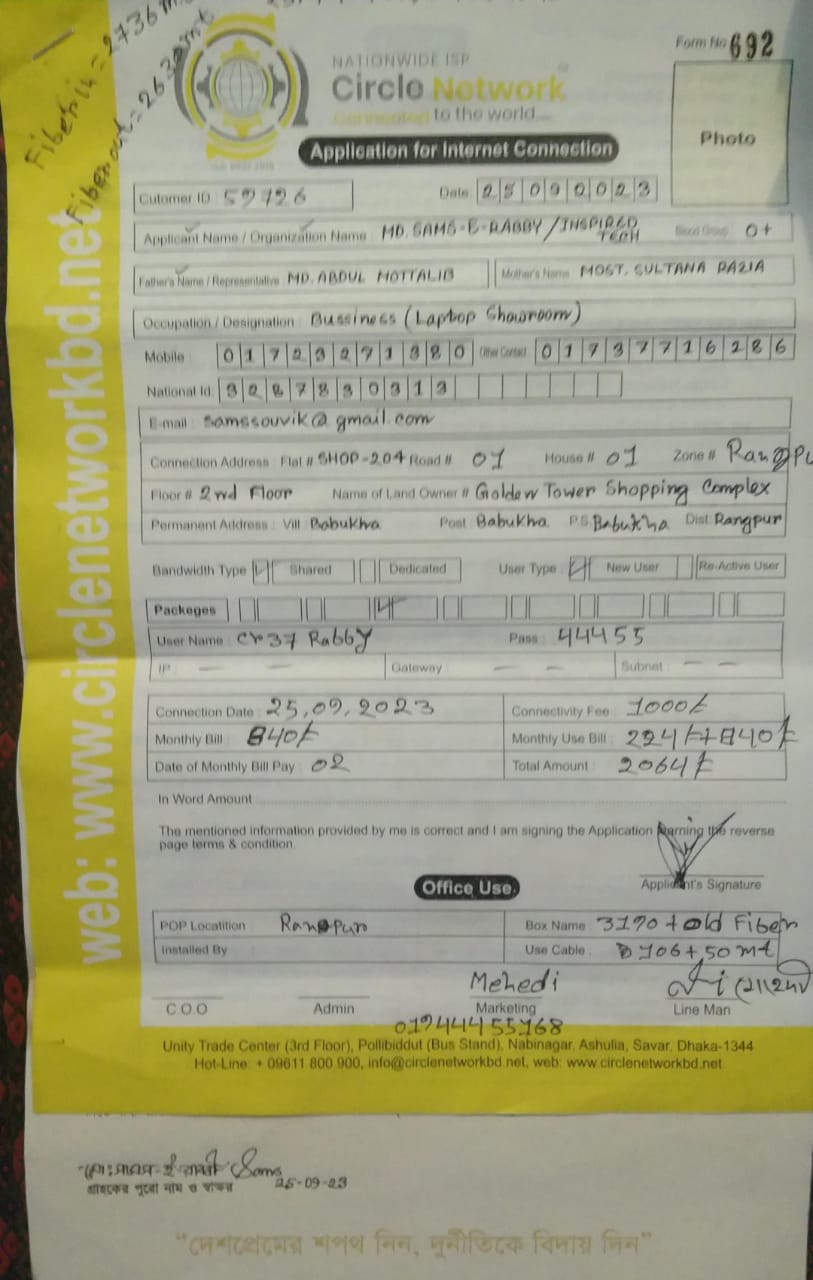 Fiber in = 2736 m
Fiber out = 2632 mt
NATIONWIDE ISP
Circle Network
Connected to the world...
Form No 692
Photo
Application for Internet Connection
Cutomer ID 59726
Date 25092023
Applicant Name / Organization Name : MD. SAMS-E-RABBY / INSPIRED TECH Blood Group O+
Father's Name / Representative MD. ABDUL MOTTALIB Mother's Name MOST. SULTANA RAZIA
Occupation / Designation : Bussiness (Laptop Showroom)
Mobile : 01723271380 Other Contact 01737716286
National Id: 3287830313
E-mail : samssouvik@gmail.com
Connection Address : Flat # SHOP-204 Road # 01 House # 01 Zone # Rangpu
Floor # 2nd Floor Name of Land Owner # Golden Tower Shopping Complex
Permanent Address : Vill Babukha Post Babukha P.S Babukha Dist. Rangpur
Bandwidth Type Shared Dedicated User Type New User Re-Active User
Packeges
User Name : cr37 Rabby Pass : 44455
IP : — — Gateway : — — Subnet : — —
Connection Date : 25,09,2023 Connectivity Fee : 1000/-
Monthly Bill : 840/- Monthly Use Bill : 224/-+840/-
Date of Monthly Bill Pay : 02 Total Amount : 2064/-
In Word Amount
The mentioned information provided by me is correct and I am signing the Application learning the reverse
page terms & condition.
Applicant's Signature
Office Use
POP Locatition Rangpur Box Name : 3190 + old Fiber
Installed By Use Cable : 106+50 mt
Mehedi
C.O.O Admin Marketing Line Man
01944455168
Unity Trade Center (3rd Floor), Pollibiddut (Bus Stand), Nabinagar, Ashulia, Savar, Dhaka-1344
Hot-Line: + 09611 800 900, info@circlenetworkbd.net, web: www.circlenetworkbd.net
web: www.circlenetworkbd.net
মোঃ সামস ই রাব্বী Sams
গ্রাহকের পুরো নাম ও স্বাক্ষর 25-09-23
“দেশপ্রেমের শপথ নিন, দুর্নীতিকে বিদায় দিন”